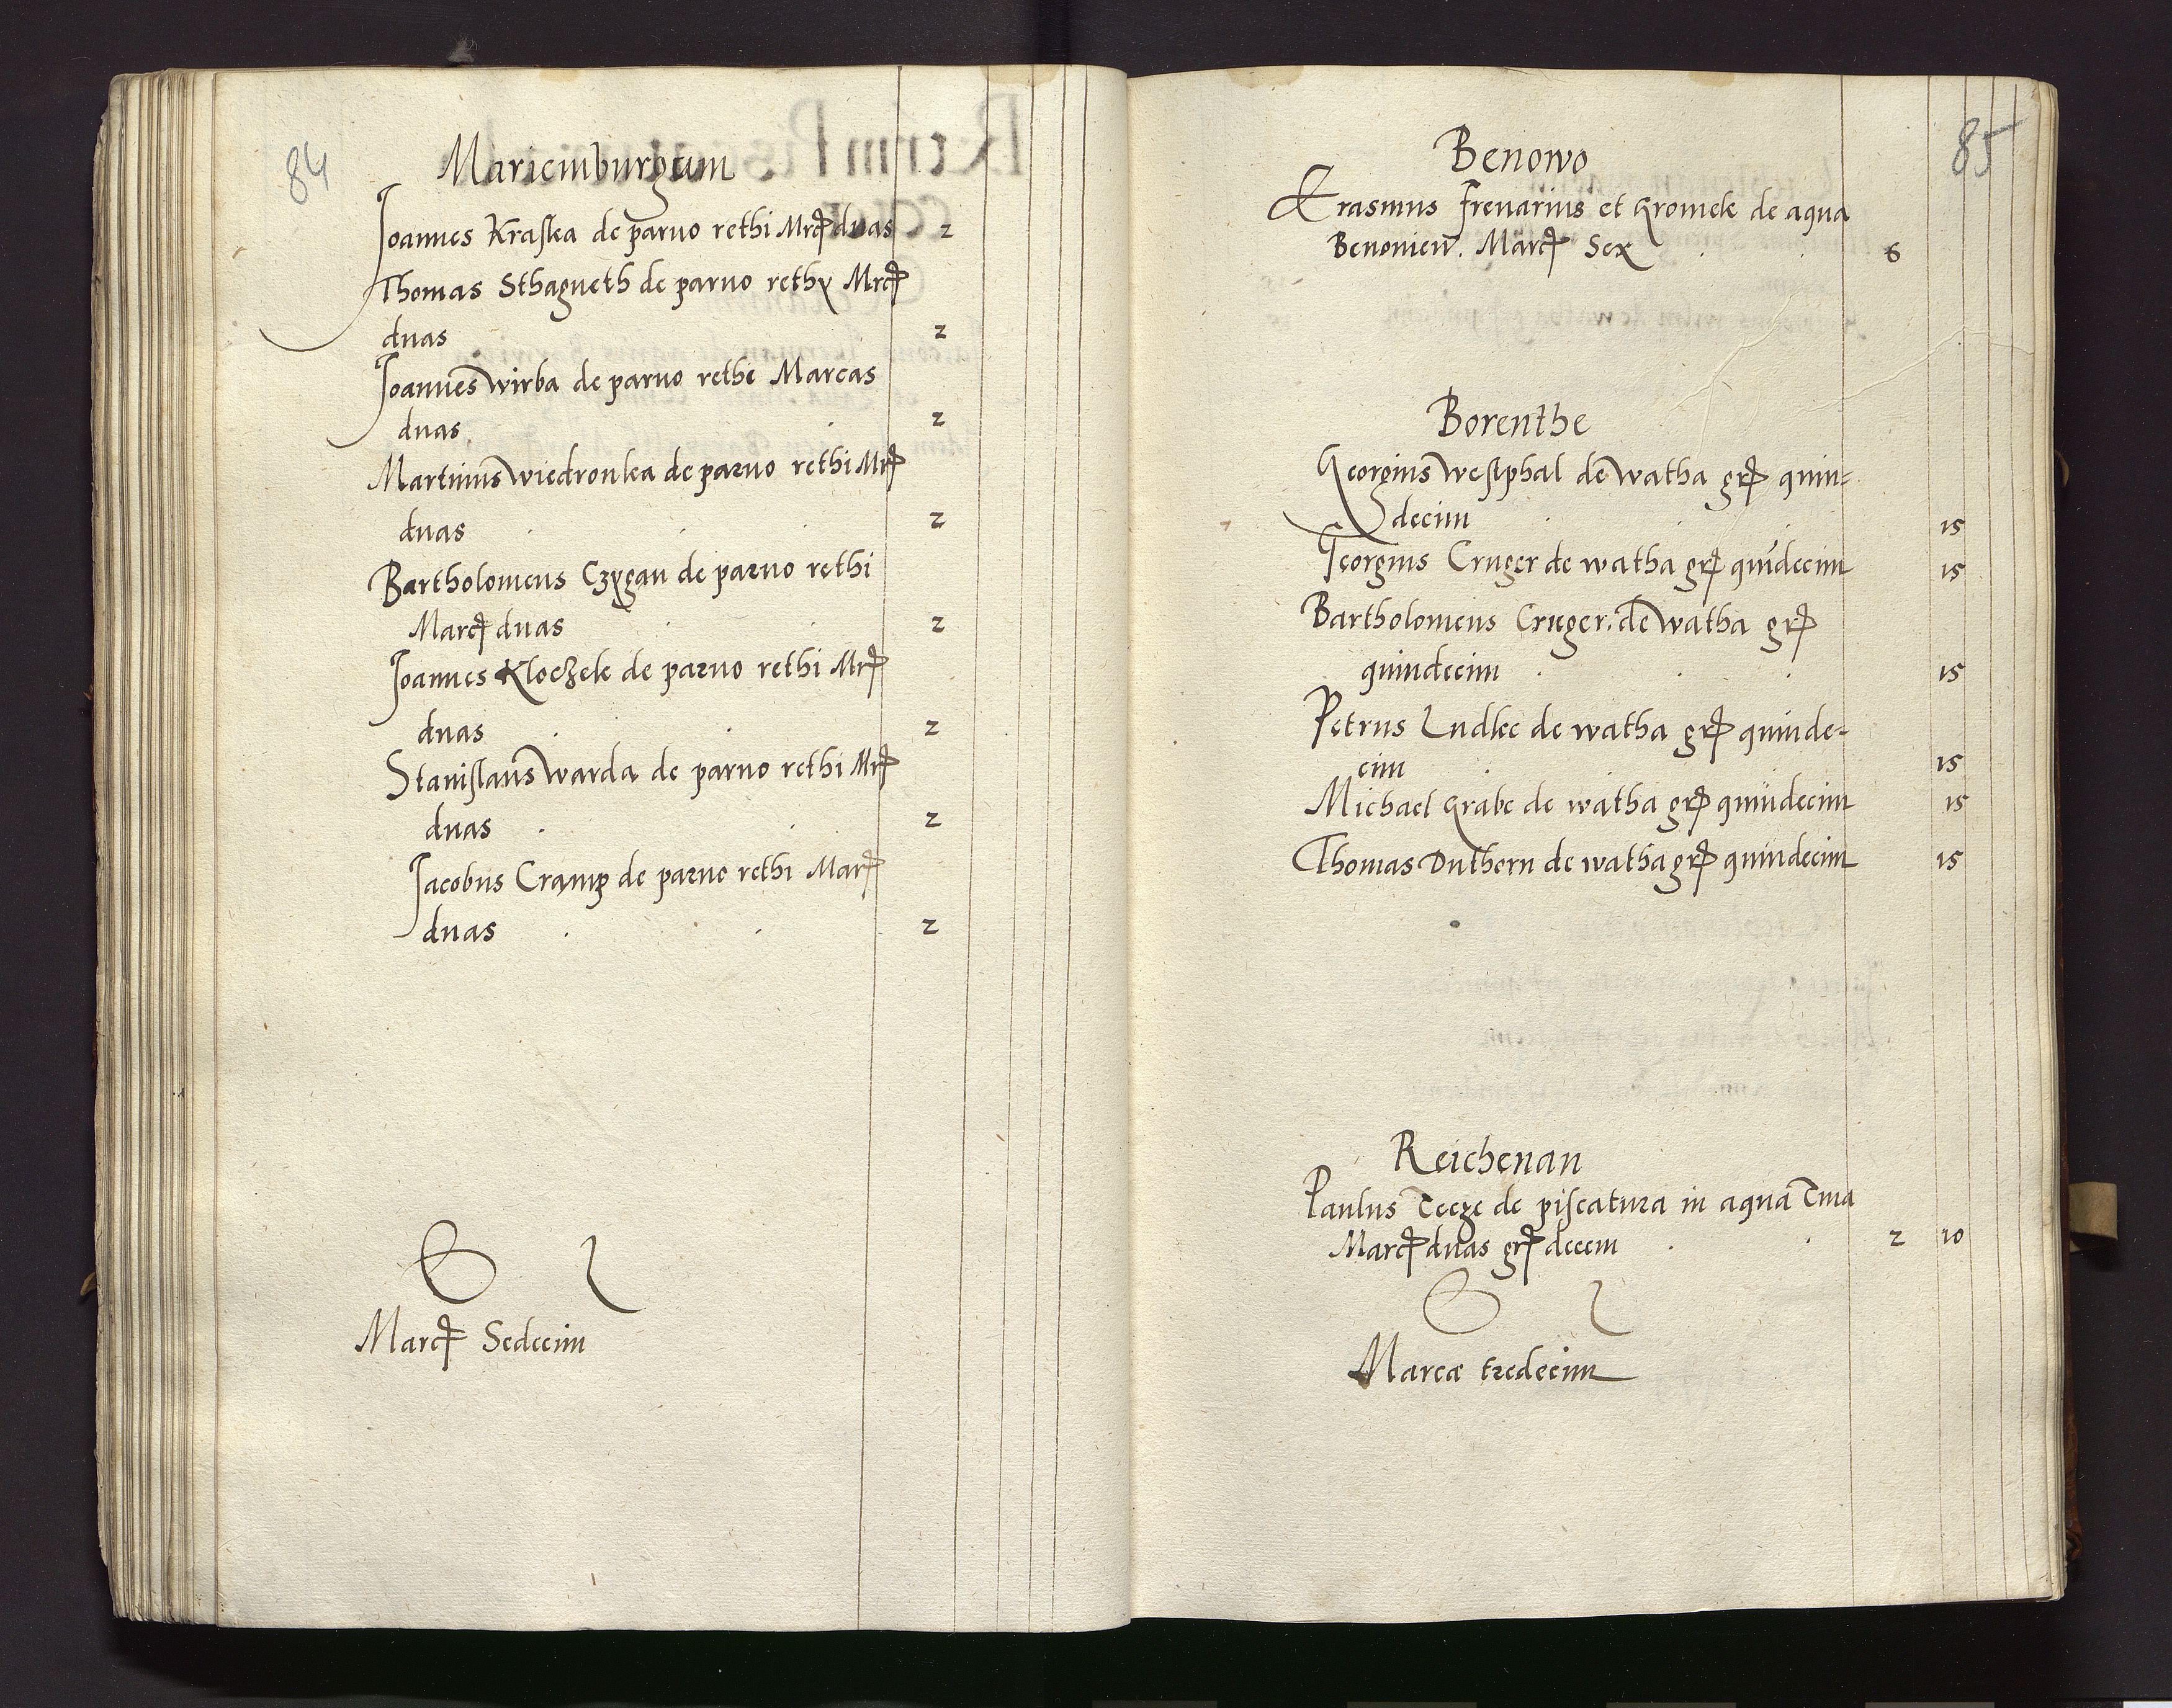 84
Mariemburgum
Joannes Kraska de paruo rethi Mrc duas 2
Thomas Sthagneth de paruo rethy Mrc
duas 2
Joannes Wirba de paruo rethi Marcas
duas 2
Martinus Wiedronka de paruo rethi Mrc
duas 2
Bartholomeus Czygan de paruo rethi
Marc duas 2
Joannes Kloczek de paruo rethi Mrc
duas 2
Stanislaus Warda de paruo rethi Mrc
duas 2
Jacobus Cramp de paruo rethi Marc
duas 2
Marc Sedecim
85
Benowo
Erasmus Frenarius et Gromek de aqua
Benonien. Marc Sex 6
Borenthe
Georgius Westphal de Watha gr quin=
decim 15
Georgius Cruger de watha gr quindecim 15
Bartholomeus Cruger de Watha gr
quindecim 15
Petrus Ludke de watha gr quinde-
cim 15
Michael Grabe de watha gr quindecim 15
Thomas Duthorn de watha gr quindecim 15
Reichenau
Paulus de piscatura in aqua
Marc duas gr decem 2 10
Marcæ tredecim